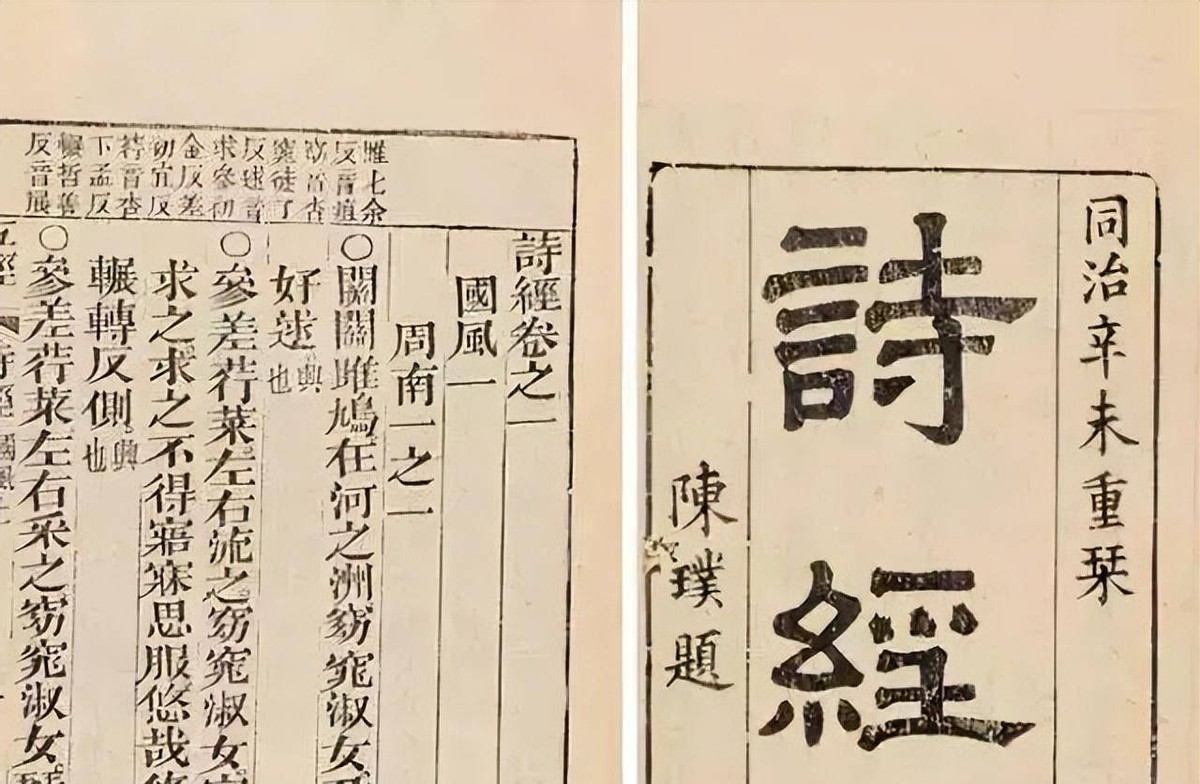 同治辛未重栞
詩經
陳璞題
雎七余
反音疽
窈音杳
窕徒了
反逑音
求參初
金反差
初宜反
荇音杏
下孟反
輾哲善
反音展
詩經卷之一
國風一
周南一之一
○關關雎鳩在河之洲窈窕淑女
好逑興也
○參差荇菜左右流之窈窕淑女
求之求之不得寤寐思服悠哉
輾轉反側興也
○參差荇菜左右采之窈窕淑女